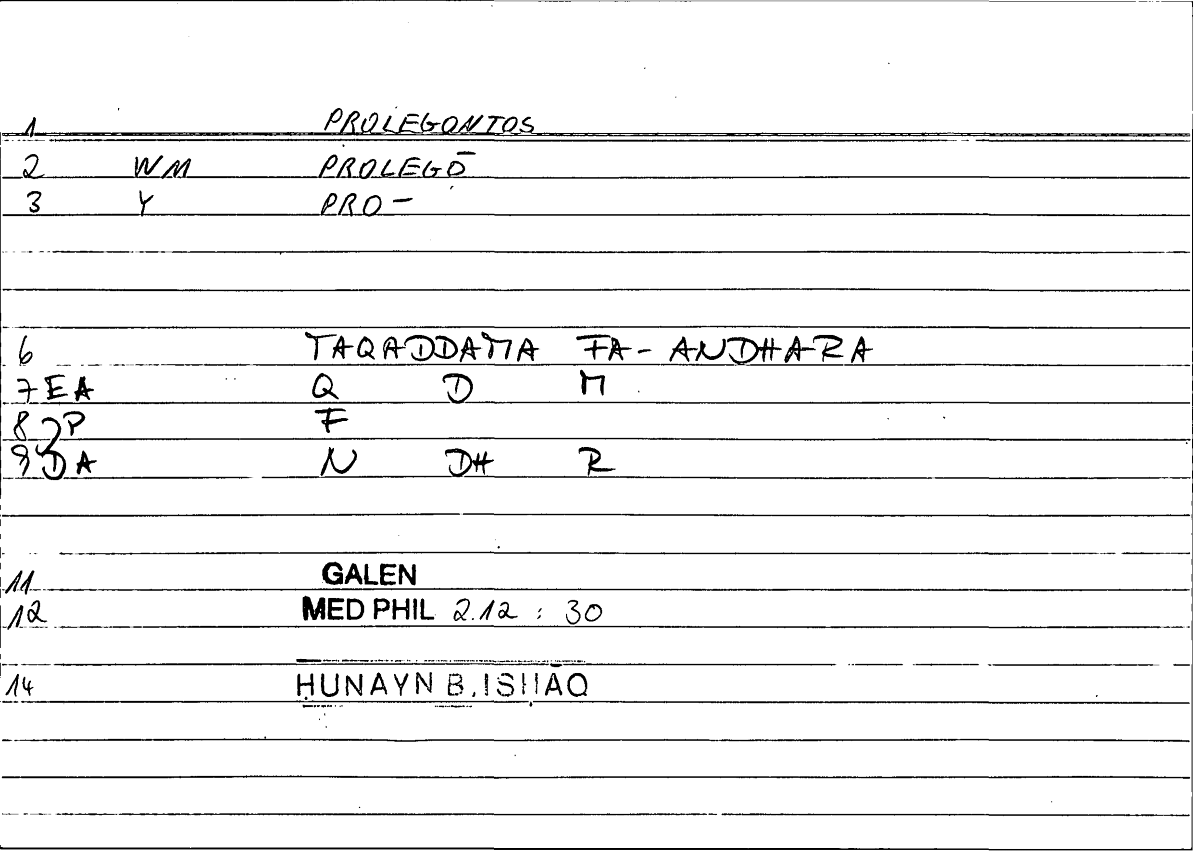 1 PROLEGONTOS
2 WM PROLEGŌ
3 Y PRO-
6 TAQADDAMA FA-ANDHARA
7 EA Q D M
8 JP F
9 DA N DH R
11 GALEN
12 MED PHIL 2.12 : 30
14 ḤUNAYN B. ISḤĀQ